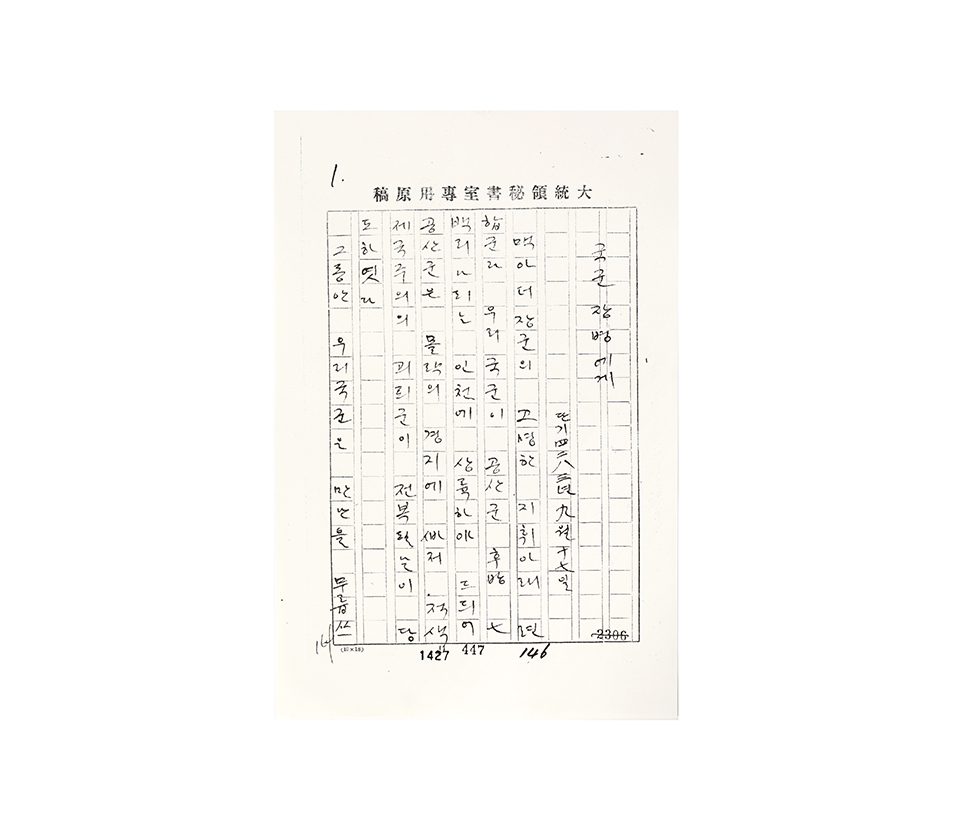 1.
大統領秘書室專用原稿
국군 장병에게
단기四二八三년 九월 十七일
맥아더장군의 고명한 지휘아래 련
합군과 우리국군이 공산군 후방 七
백리 되는 인천에 상륙하야 드듸어
공산군은 몰락의 경지에 빠저 적색
제국주의의 괴뢰군이 전복될날이 당
도하엿다
그동안 우리국군은 만난을 무릅쓰
2306
(10×18)
1427
447
146